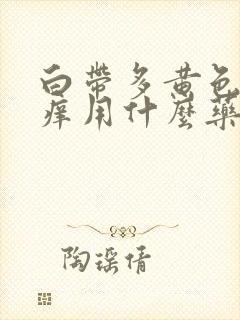 白帶多黄色
痒用什麼藥
陶瑶倩